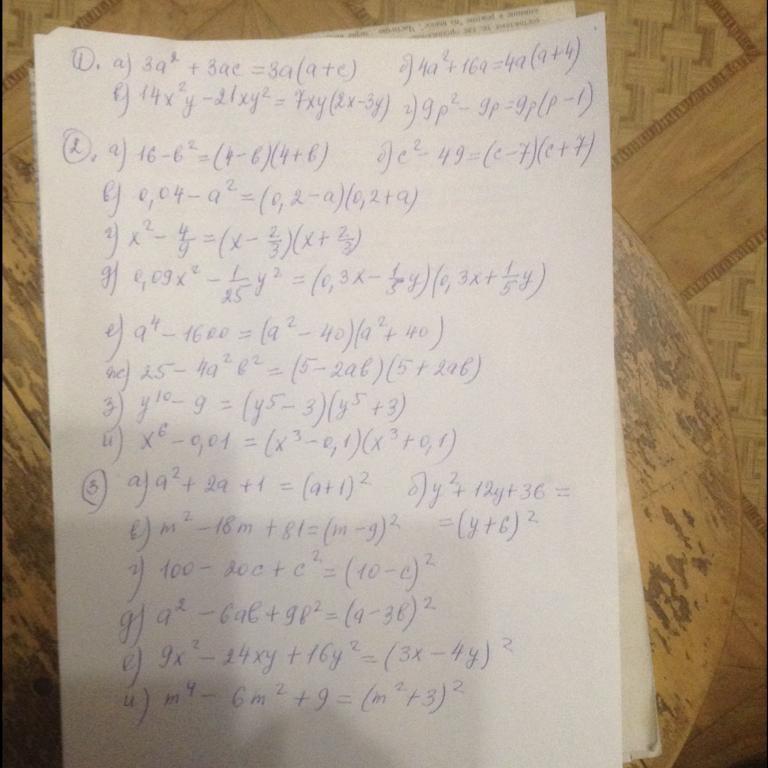 1. а) 3a² + 3ac = 3a(a+c) б) 4a²+16a=4a(a+4)
в) 14x²y - 21xy² = 7xy(2x-3y) г) 9p² - 9p=9p(p-1)
2. а) 16-b²=(4-b)(4+b) б) c²-49=(c-7)(c+7)
в) 0,04-a²=(0,2-a)(0,2+a)
г) x² - 4/9 = (x - 2/3)(x + 2/3)
д) 0,09x² - 1/25 y² = (0,3x - 1/5 y)(0,3x + 1/5 y)
е) a⁴ - 1600 = (a² - 40)(a² + 40)
ж) 25 - 4a²b² = (5-2ab)(5+2ab)
з) y¹⁰ - 9 = (y⁵ - 3)(y⁵ + 3)
и) x⁶ - 0,01 = (x³ - 0,1)(x³ + 0,1)
3 а) a² + 2a + 1 = (a+1)² б) y² + 12y + 36 =
в) m² - 18m + 81 = (m-9)² = (y+6)²
г) 100 - 20c + c² = (10-c)²
д) a² - 6ab + 9b² = (a-3b)²
е) 9x² - 24xy + 16y² = (3x - 4y)²
и) m⁴ - 6m² + 9 = (m² + 3)²